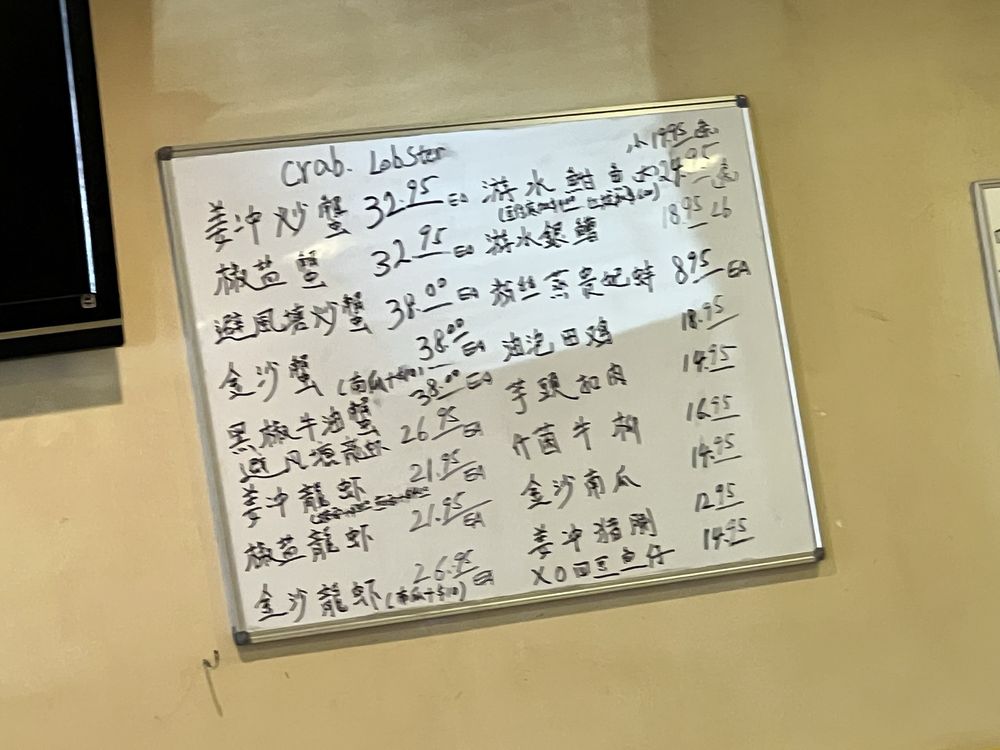 Crab. Lobster
姜冲炒蟹 32.95 EA
椒盐蟹 32.95 EA
避風塘炒蟹 38.00 EA
金沙蟹 (南瓜+$10) 38.00 EA
黑椒牛油蟹 38.00 EA
避风塘龍虾 26.95 EA
姜冲龍虾 21.95 EA
椒盐龍虾 21.95 EA
金沙龍虾 (南瓜+$10) 26.95 EA
小 19.95
游水 24.95
游水銀鱈 18.95
粉丝蒸貴妃蚌 8.95 EA
油泡田鸡 18.95
芋頭扣肉 14.95
什菌牛柳 16.95
金沙南瓜 14.95
姜冲猪 12.95
XO 14.95